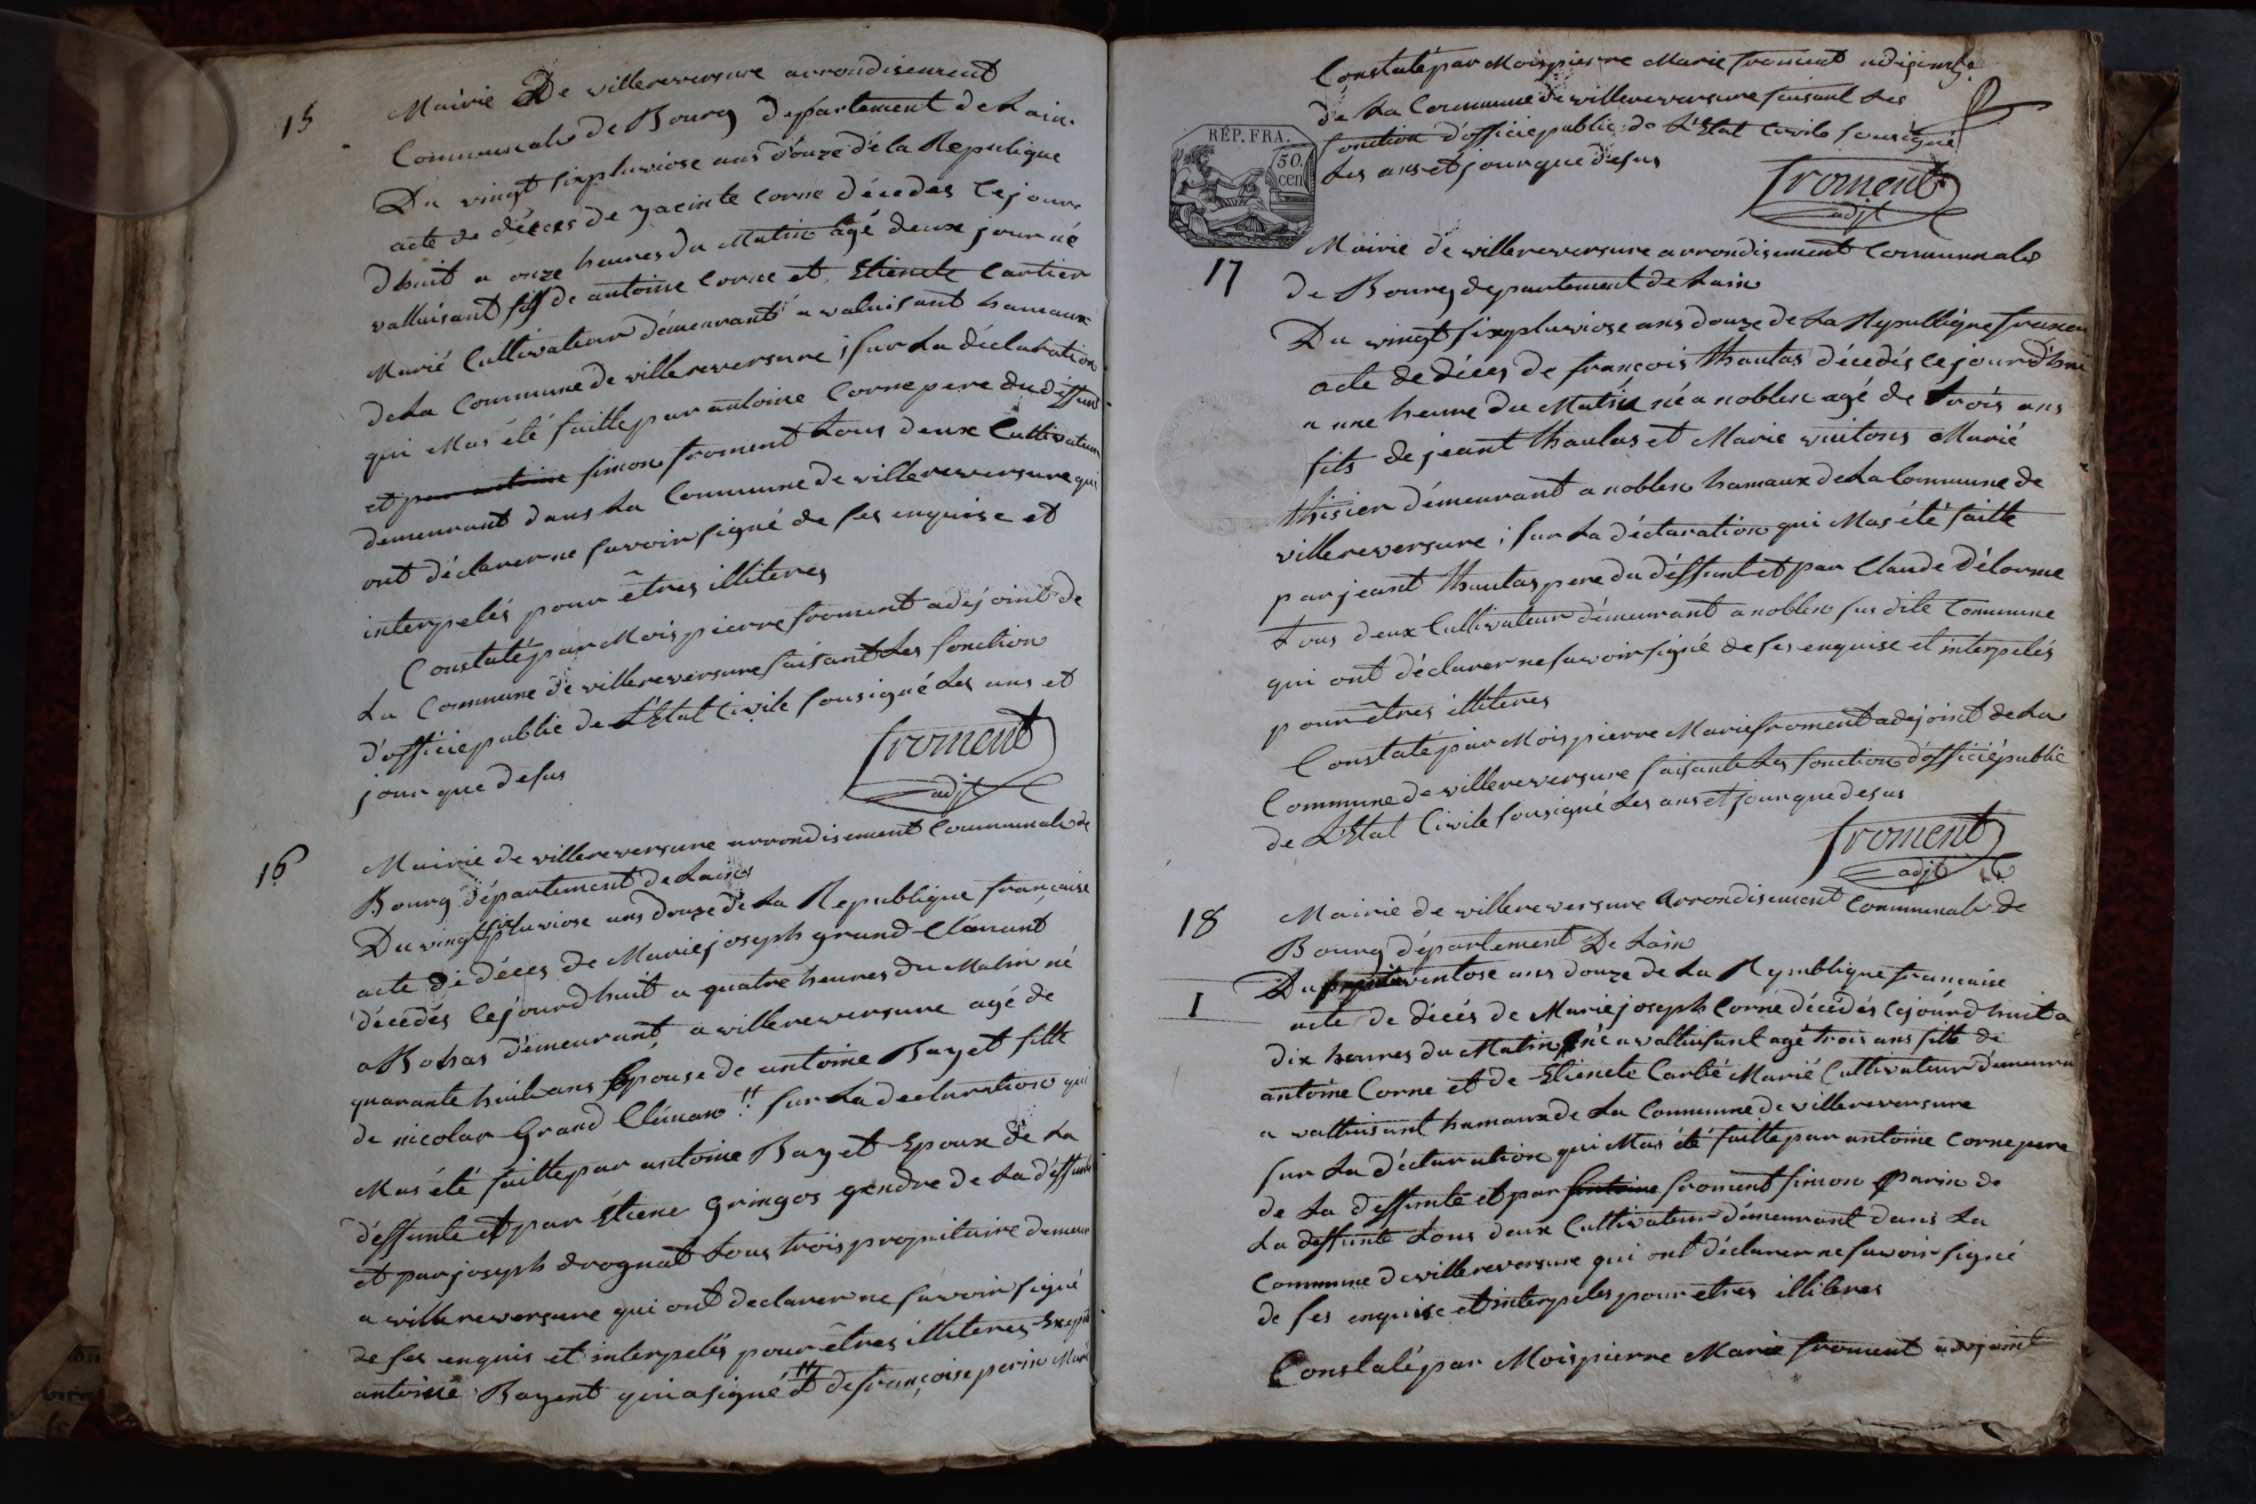 15
Mairie De villereversure arrondisement
Communale de Bourg departement de Lain
Du vingt six pluviose ans douze de la Republique
acte de déces de yacinte Corne décedes Cejour
dhuit a onze heures du Matin agé deux jour né
valluisant fils de antoine Corne et Etienete Cartier
Marié Cultivateur démeurant a valuisant hameaux
de La Commune de villereversure ; sur La déclaration
qui Mas été faitte par antoine Corne pere du deffunt
et par antoine simon froment tous deux Cultivateur
demeurant dans La Commune de villereversure qui
ont déclarer ne savoir signé de ses enquise et
interpelés pour êtres illiteres
Constaté par Mois pierre froment adejoint de
La Commune de villereversure faisant Les fonction
d'officie public de L'Etat Civile sousigné Les ans et
jour que desus
froment
adjt
16
Mairie de villereversure arrondisement Communale de
Bourg département de Lain
Du vingt six pluviose ans douze de La Republique française
acte de déces de Marie joseph grand Clémant
décedés Cejourdhuit a quatre heures du Matin né
a Bohas démeurant a villereversure agé de
quarante huit ans Epouse de antoine Bayet fille
de nicolas Grand Clémans # sur La declaration qui
Mas été faitte par antoine Bayet Epoux de La
déffunte et par Etiene gringos gendre de La déffunte
et par joseph drognat tous trois propritaire demeur
a villereversure qui ont declarer ne savoir signé
de ses enquis et interpelés pour êtres illiteres Exepté
antoine Bayent qui a signé # et de françoise perin Marié
Constaté par Mois pierre Marie froment adejoint
de La Commune de villereversure faisant Les
fonction d'officie public de L'Etat Civile sousigné
Les ans et jour que desus
RÉP. FRA.
50.
cen
froment
adjt
17
Mairie de villereversure arrondisement Communale
de Bourg departement de Lain
Du vingt six pluviose ans douze de La Republique francai
acte de déces de françois thaulas décedés cejourd'hui
a une heure du Matin né a noblen agé de trois ans
fils de jeant thaulas et Marie vuitons Marié
thisier démeurant a noblen hamaux de La Commune de
villereversure ; sur La déclaration qui Mas été faitte
par jeant thaulas pere du déffunt et par Claude Délorme
tous deux Cultivateur démeurant a noblen sus dite Commune
qui ont déclarer ne savoir signé de ses enquise et interpelés
pour êtres illiteres
Constaté par Mois pierre Marie froment adejoint de La
Commune de villereversure faisante Les fonction d'officié public
de L'Etat Civile sousigné Les ans et jour que desus
froment
adjt
18
Mairie de villereversure arrondisement Communale de
Bourg département De Lain
1
Du ventose ans douze de La Republique francaise
acte de décés de Marie joseph Corne décédés cejourd huit a
dix heures du Matin né a valluisant agé trois ans fille de
antoine Corne et de Etienete Cartié Marié Cultivateur démeura
a valluisant hamaux de La Commune de villereversure
sur La déclaration qui Mas été faitte par antoine Corne pere
de La deffunte et par antoine froment simon parin de
La deffunte tous deux Cultivateur démeurant dans La
Commune de villereversure qui ont déclarer ne savoir signé
de ses enquise et interpeles pour etres illiteres
Constaté par Mois pierre Marie froment adejoint